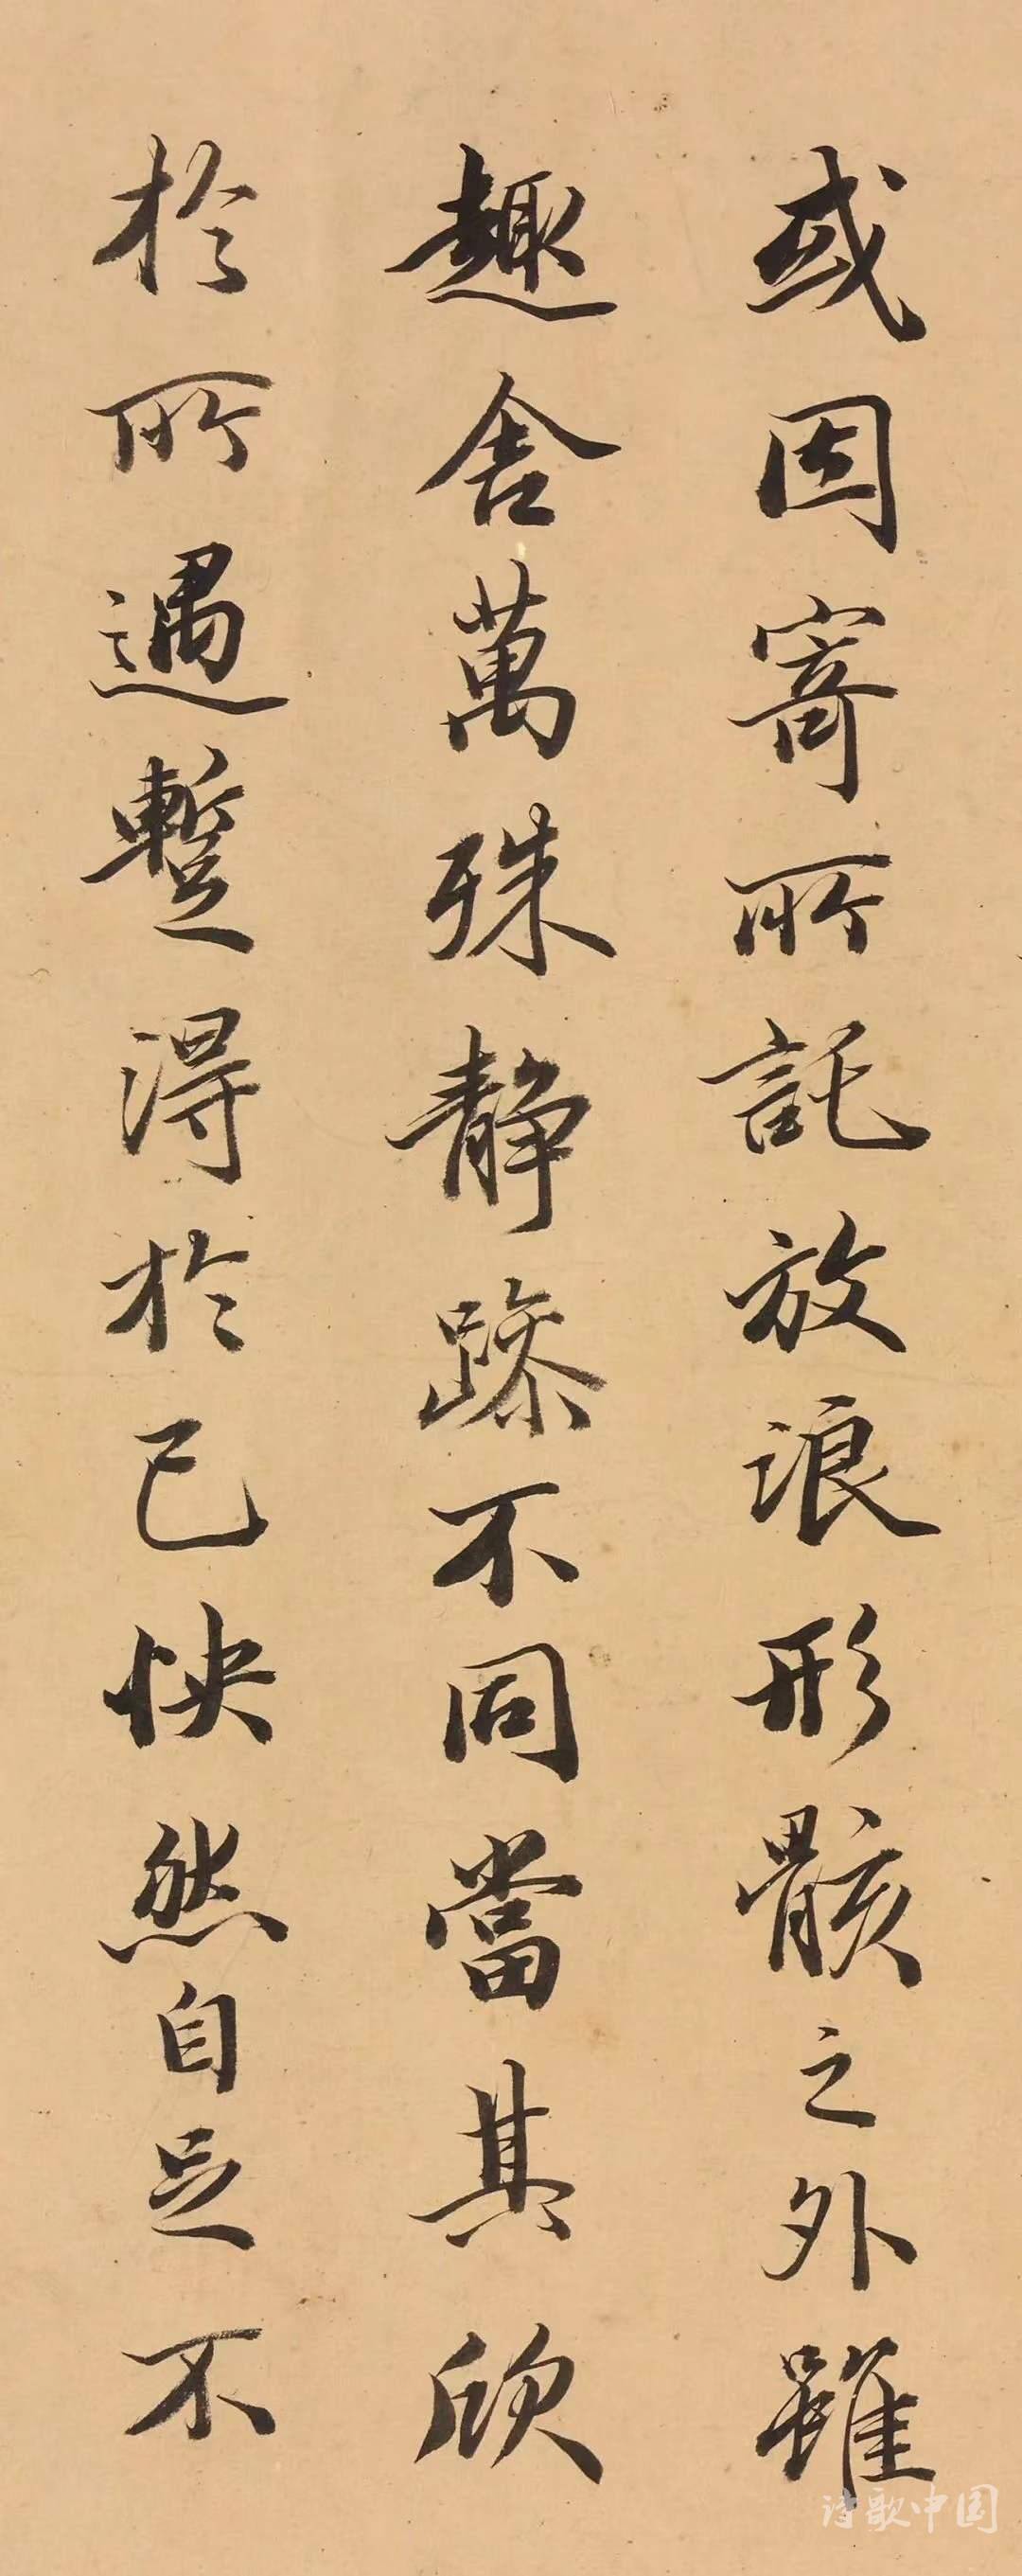 或因寄所託放浪形骸之外雖
趣舍萬殊靜躁不同當其欣
於所遇蹔得於己怏然自足不
诗歌中国